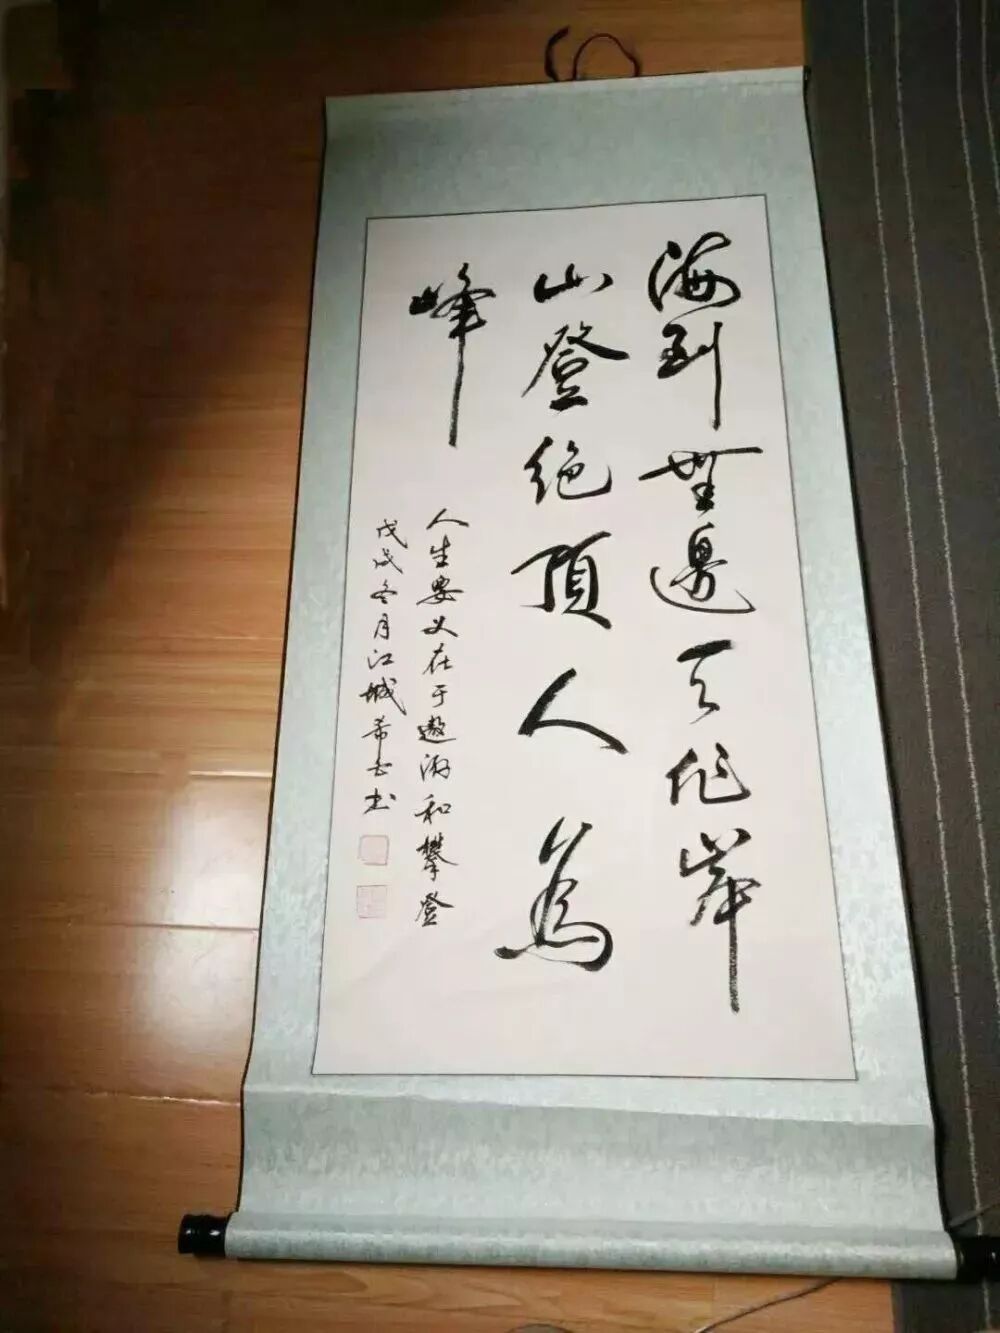 海到無邊天作岸
山登絶頂人為
峰
人生要义在于遨游和攀登
戊戌冬月江城希玉书